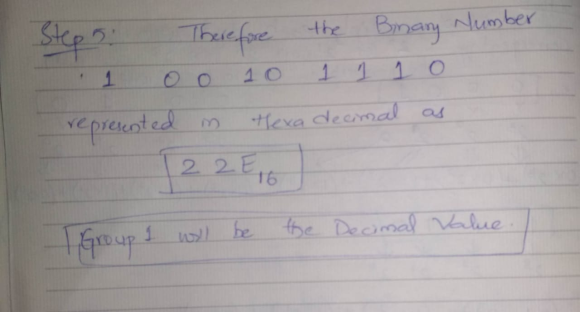 Step 5: Therefore the Binary Number
1 0 0 1 0 1 1 1 0
represented in Hexadecimal as
2 2E16
Group 1 will be the Decimal Value.